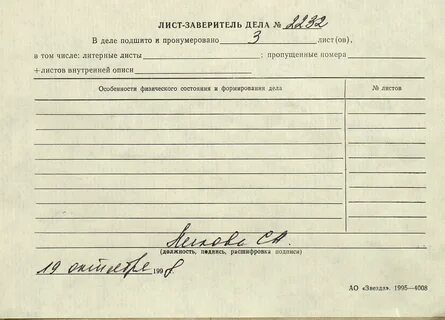 ЛИСТ-ЗАВЕРИТЕЛЬ ДЕЛА № 2232
В деле подшито и пронумеровано 3 лист(ов),
в том числе: литерные листы ; пропущенные номера
+листов внутренней описи
Особенности физического состояния и формирования дела № листов
С.А.
(должность, подпись, расшифровка подписи)
19 октября 1998
АО «Звезда». 1995—4008